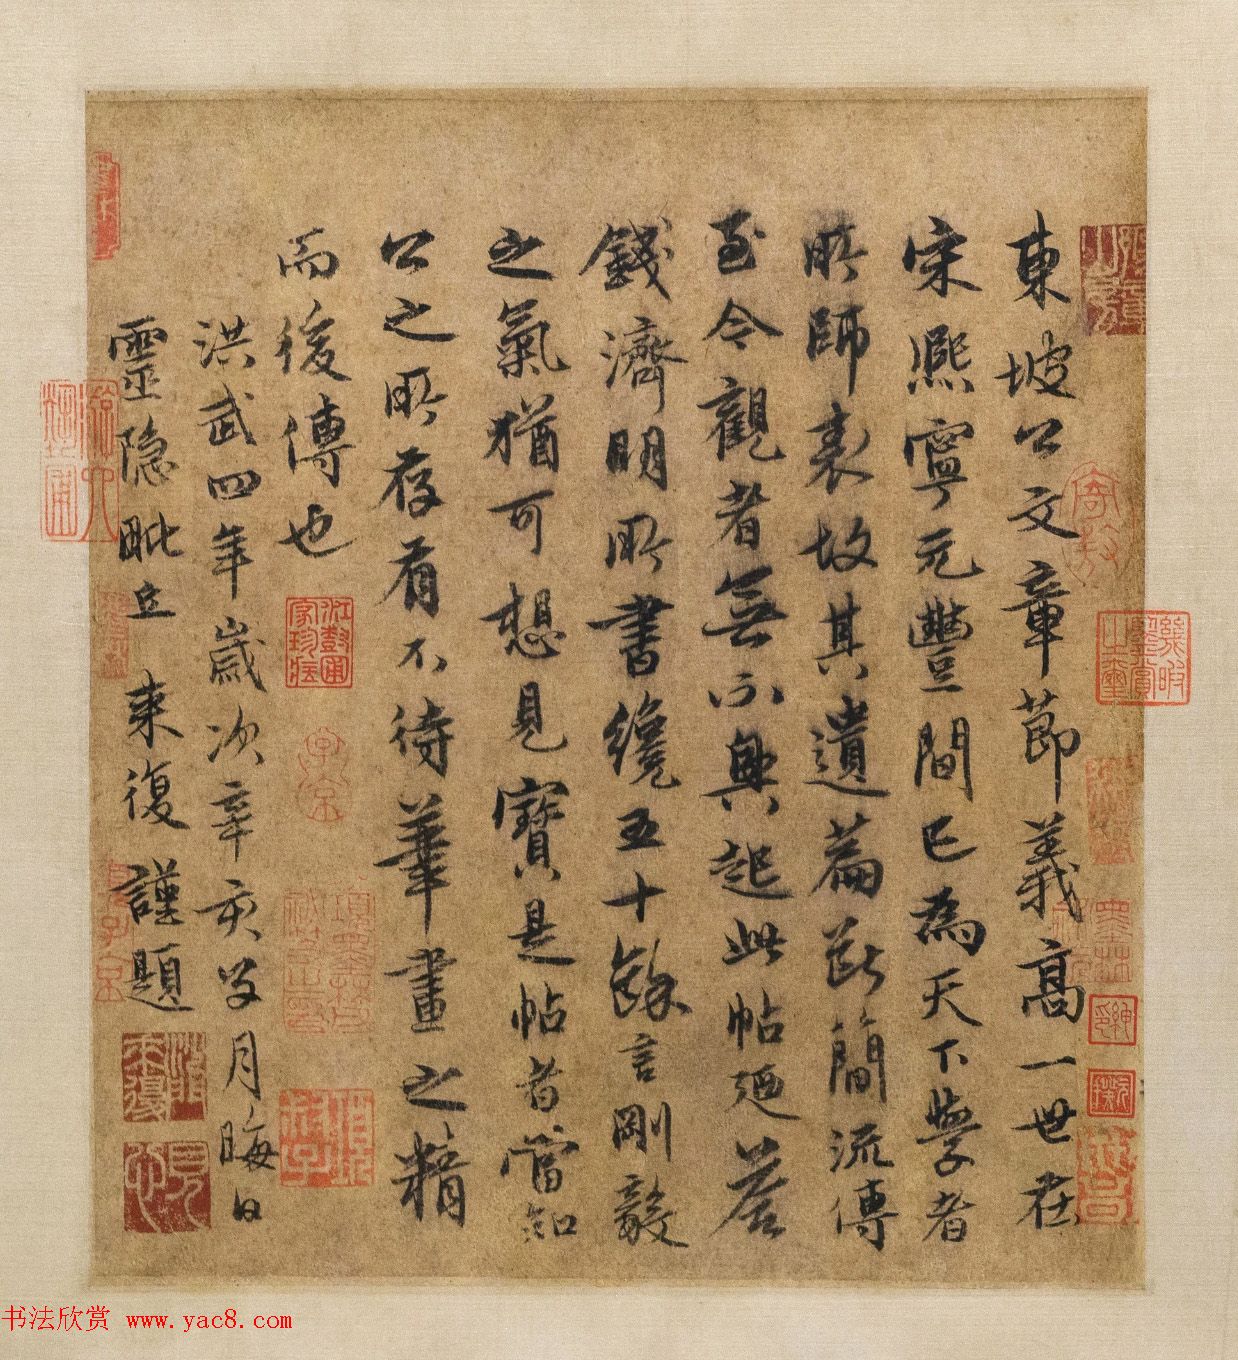 東坡公文章節義高一世在
宋熙寧元豐間已為天下學者
所師表故其遺篇斷簡流傳
至今觀者無不興起此帖迺答
錢濟明所書纔五十餘言剛毅
之氣猶可想見寶是帖者當知
公之所存有不待筆畫之精
而後傳也
洪武四年歲次辛亥月晦日
靈隱毗丘 來復謹題
幾暇鑒賞之璽
子京
見心
书法欣赏 www.yac8.com